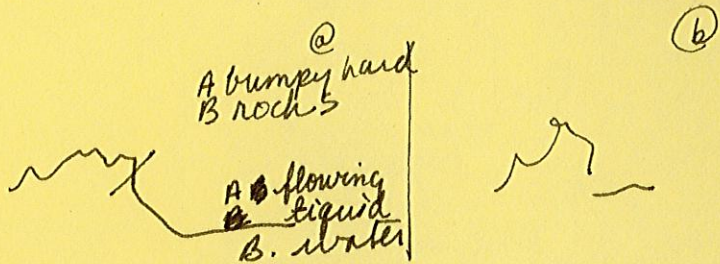 a
A bumpy hard
B rocks
A flowing
liquid
B. water
b